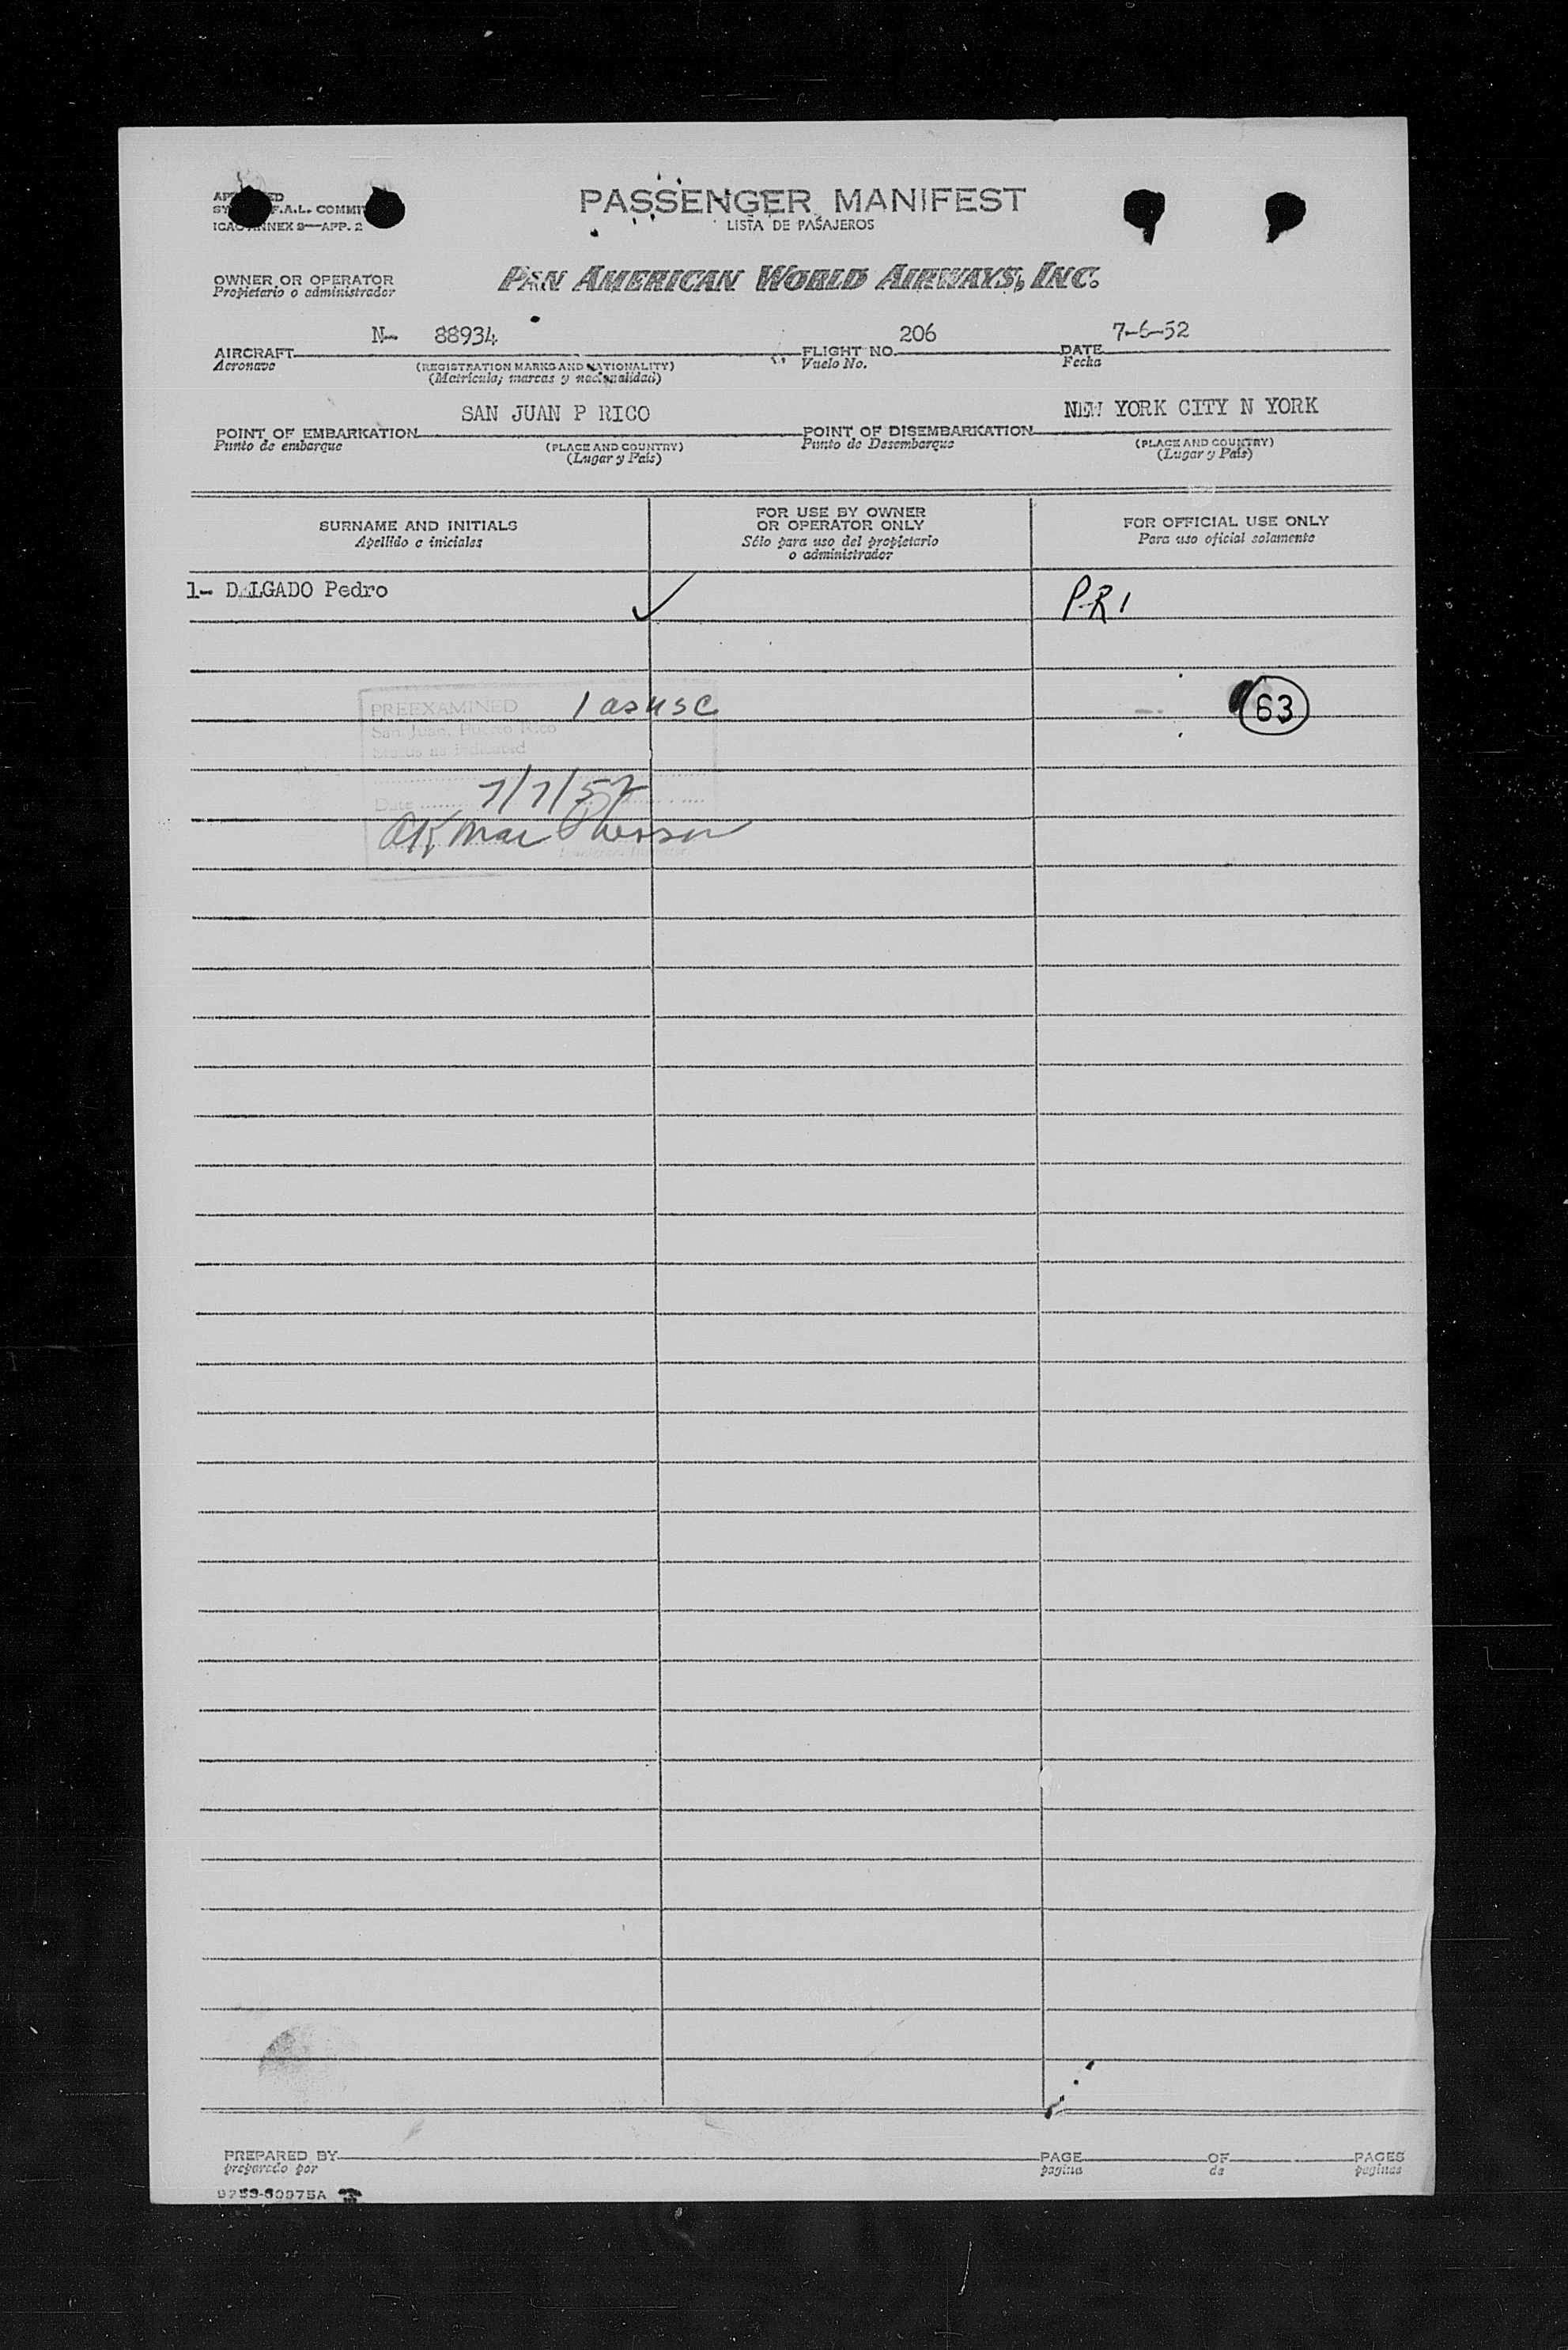 PASSENGER MANIFEST
LISTA DE PASAJEROS
F.A.L. COMMI
ICAO ANNEX 9—APP. 2
OWNER OR OPERATOR
Propietario o administrador
PAN AMERICAN WORLD AIRWAYS, INC.
N- 88934 206 7-6-52
AIRCRAFT FLIGHT NO. DATE
Aeronave (REGISTRATION MARKS AND NATIONALITY) Vuelo No. Fecha
(Matrícula; marcas y nacionalidad)
SAN JUAN P RICO NEW YORK CITY N YORK
POINT OF EMBARKATION POINT OF DISEMBARKATION
Punto de embarque (PLACE AND COUNTRY) Punto de Desembarque (PLACE AND COUNTRY)
(Lugar y País) (Lugar y País)
SURNAME AND INITIALS
Apellido e iniciales
FOR USE BY OWNER
OR OPERATOR ONLY
Sólo para uso del propietario
o administrador
FOR OFFICIAL USE ONLY
Para uso oficial solamente
1- DELGADO Pedro ✓ PR 1
PREEXAMINED 1 as usc
San Juan, Puerto Rico
Status as indicated
63
Date 7/7/52
PREPARED BY PAGE OF PAGES
preparado por pagina de paginas